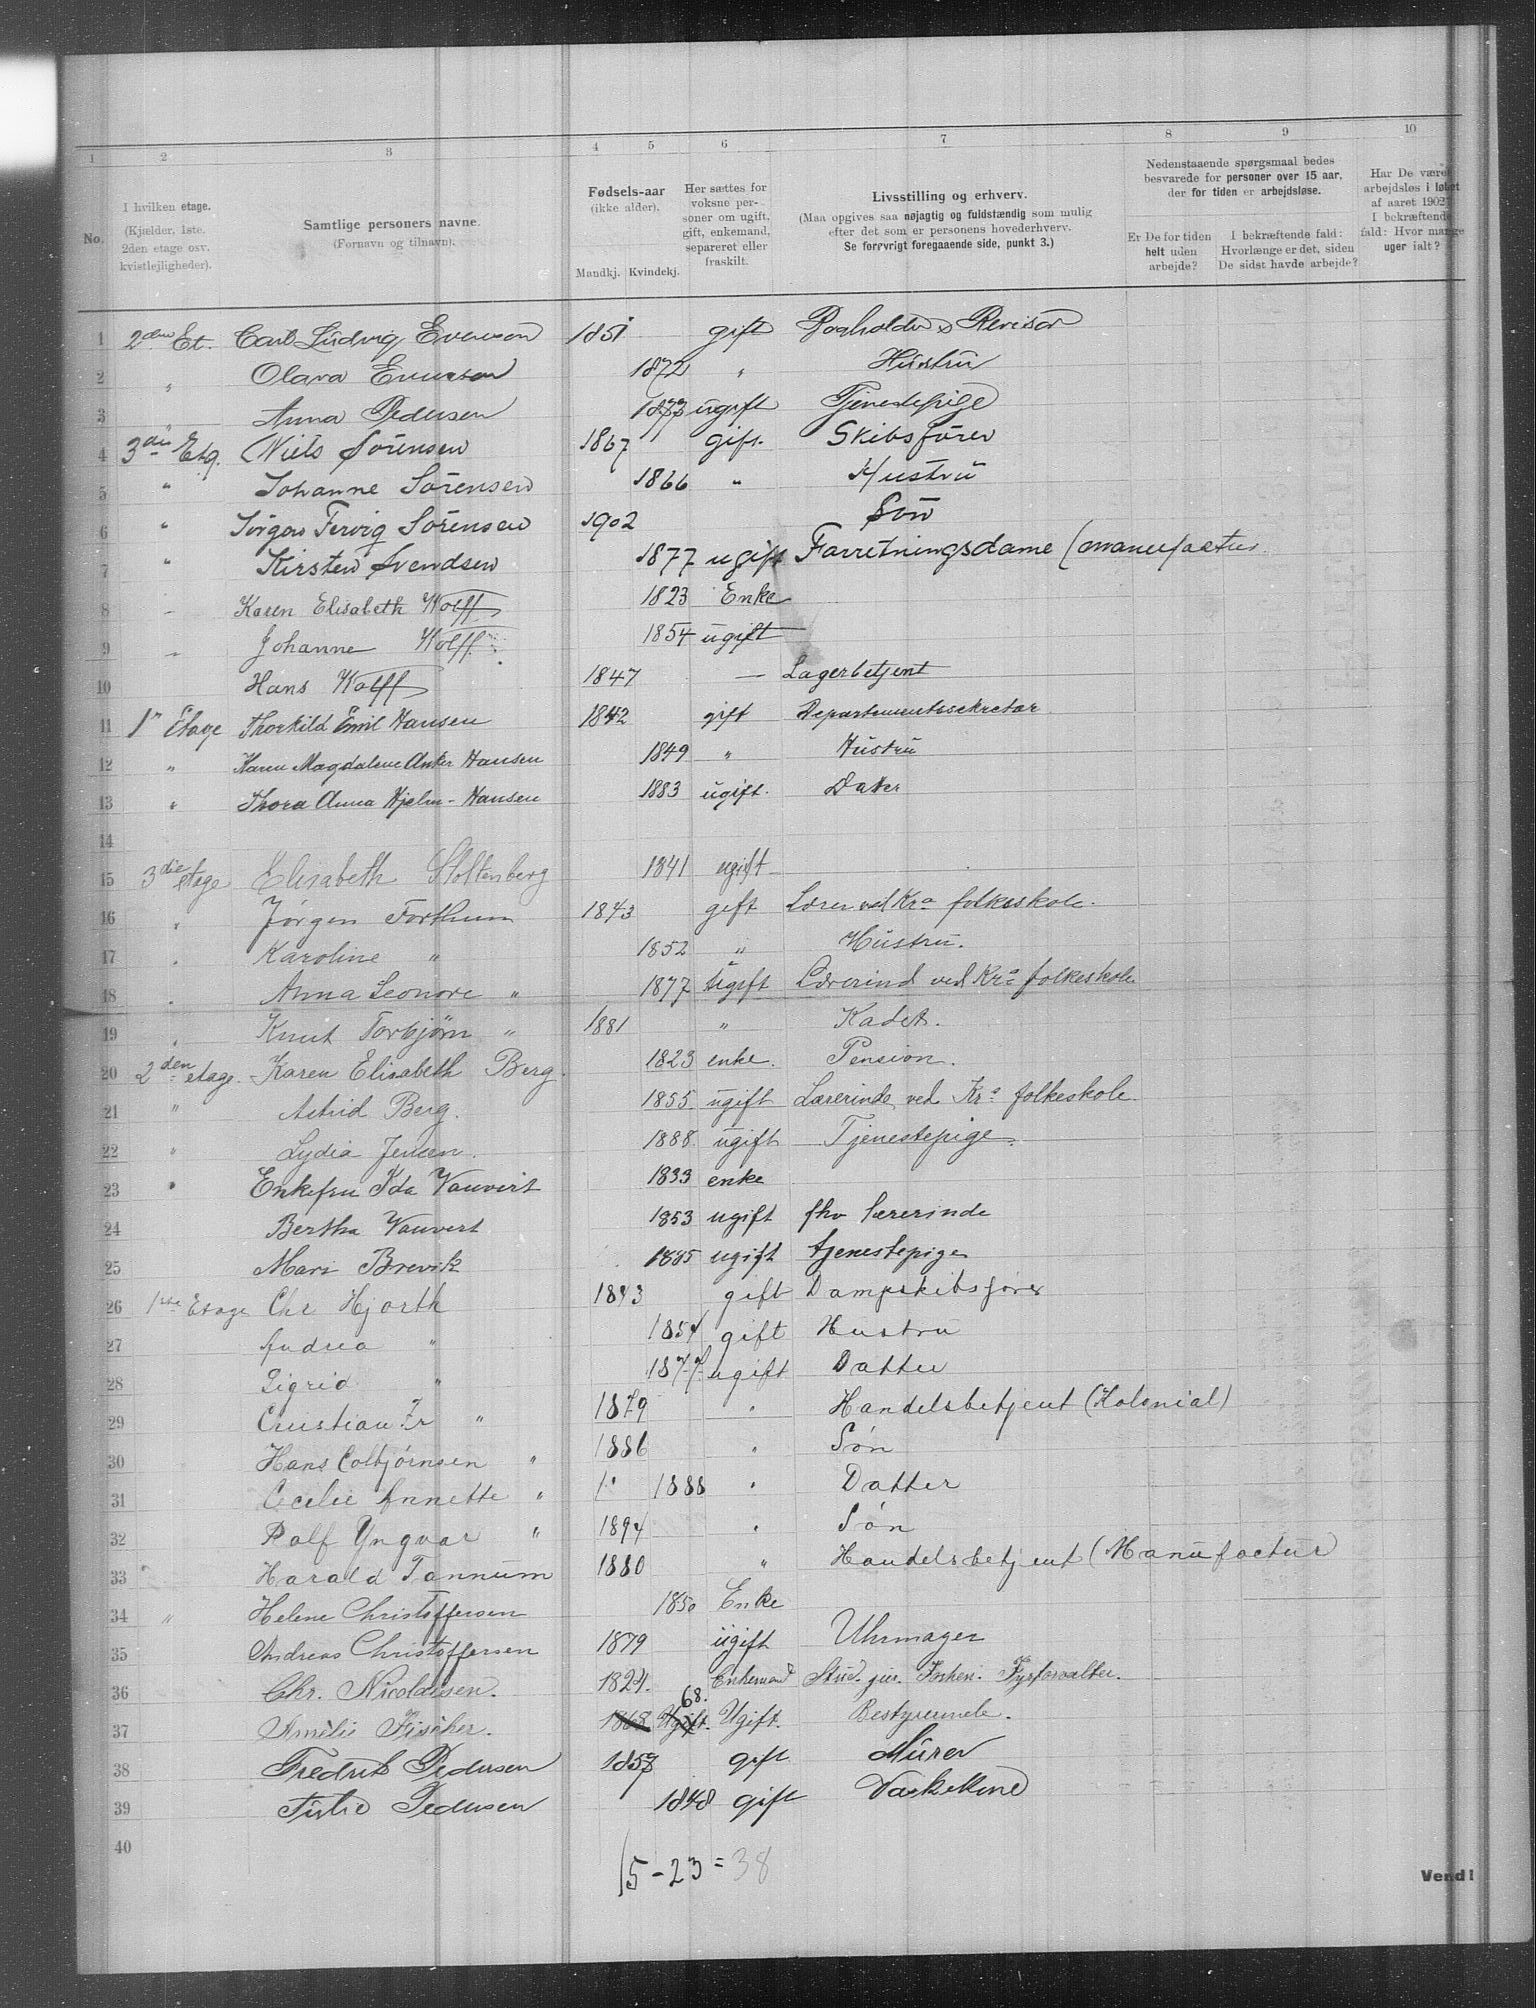 1 2 3 4 5 6 7 8 9 10
No.
I hvilken etage.
(Kjælder, 1ste.
2den etage osv.
kvistlejligheder).
Samtlige personers navne.
(Fornavn og tilnavn).
Fødsels-aar
(ikke alder).
Mandkj. Kvindekj.
Her sættes for
voksne per-
soner om ugift,
gift, enkemand,
separeret eller
fraskilt.
Livsstilling og erhverv.
(Maa opgives saa nøjagtig og fuldstændig som mulig
efter det som er personens hovederhverv.
Se forøvrigt foregaaende side, punkt 3.)
Nedenstaaende spørgsmaal bedes
besvarede for personer over 15 aar,
der for tiden er arbejdsløse.
Er De for tiden
helt uden
arbejde?
I bekræftende fald:
Hvorlænge er det, siden
De sidst havde arbejde?
Har De været
arbejdsløs i løbet
af aaret 1902?
I bekræftende
fald: Hvor mange
uger ialt?
1 2den Et. Carl Ludvig Evensen 1851 gift Bogholder & Revisor
2 " Olava Evensen 1872 " Hustru
3 Anna Pedersen 1873 ugift Tjenestepige
4 3die Etg. Niels Sörensen 1867 gift Skibsförer
5 " Johanne Sörensen 1866 " Hustru
6 " Jörgen Sörensen 1902 Sön
7 " Kirsten Svendsen 1877 ugift Forretningsdame (manufactur
8 - Karen Elisabeth Wolff 1823 Enke
9 - Johanne Wolff 1854 ugift
10 Hans Wolff 1847 — Lagerbetjent
11 1ste Etage Thorkild Emil Hansen 1842 gift Departementssekretær
12 " Karen Magdalene Anker Hansen 1849 " Hustru
13 " Thora Anna Hjelm-Hansen 1883 ugift. Datter
14
15 3die etage Elisabeth Stoltenberg 1841 ugift
16 " Jørgen Forthun 1843 gift Lærer ved Kra folkeskole.
17 " Karoline " 1852 " Hustru.
18 " Anna Leonore " 1877 ugift Lærerind ved Kra folkeskole
19 " Knut Torbjörn " 1881 " Kadet.
20 2den etage. Karen Elisabeth Berg. 1823 enke. Pension.
21 " Astrid Berg. 1855. ugift Lærerinde ved Kra folkeskole
22 " Lydia Jensen. 1888. ugift Tjenestepige.
23 " Enkefru Ida Vauvert 1833 enke
24 Bertha Vauvert 1853 ugift fhv lærerinde
25 Mari Brevik 1885 ugift tjenestepige
26 1ste Etage Chr Hjorth 1843 gift Dampskibsfører
27 Andrea " 1854 gift Hustru
28 Sigrid " 1877 ugift Datter
29 Christian Fr " 1879 " Handelsbetjent (Kolonial)
30 Hans Colbjørnsen " 1886 " Søn
31 Cecilie Annette " 1888 " Datter
32 Rolf Yngvar " 1894 " Søn
33 Harald Tannum 1880 " Handelsbetjent (Manufactur
34 " Helene Christoffersen 1850 Enke
35 Andreas Christoffersen 1879 ugift Uhrmager
36 Chr. Nicolaisen. 1824. Enkemand Stud. jur. Fyrforvalter.
37 Amelie Fischer. 1868 Ugift. 68. Ugift. Bestyrerinde.
38 Fredrik Pedersen 1857 gift Murer
39 Julie Pedersen 1848 gift Vaskekone
40
15 - 23 = 38
Vend!